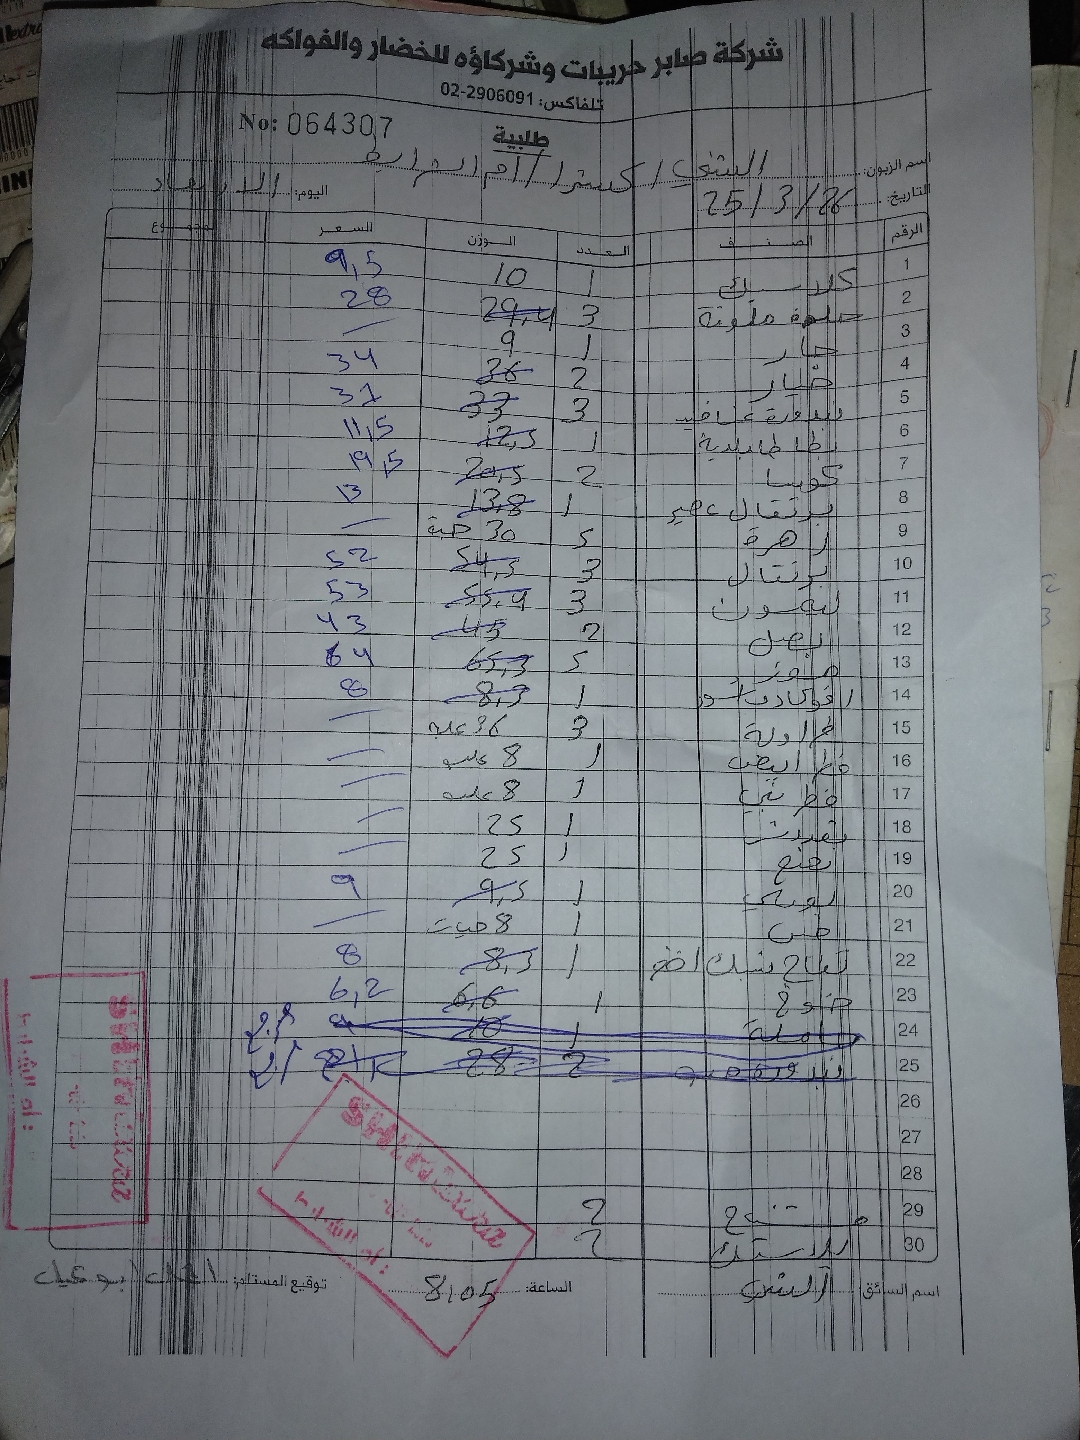 شركة صابر حريبات وشركاؤه للخضار والفواكه
تلفاكس: 02-2906091
No: 064307
طلبية
اسم الزبون: الشني / اكسترا / ام الشرايط
التاريخ: 25/3/26 اليوم: الاربعاء
الرقم الصنف العدد الوزن السعر المجموع
1 كلاسيك 1 10 9,5
2 حلوة ملونة 3 29,4 28
3 حار 1 9 —
4 خيار 2 36 34
5 بندورة عناقيد 3 33 31
6 بطاطا بلدية 1 12,5 11,5
7 كوسا 2 20,5 19,5
8 برتقال عصير 1 13,8 13
9 زهرة 5 30 حبة —
10 برتقال 3 54,5 52
11 ليمون 3 55,4 53
12 بصل 2 45 43
13 موز 5 65,3 64
14 افوكادو 1 8,3 8
15 فراولة 3 36 علبة —
16 فطر ابيض 1 8 علب —
17 فطر بني 1 8 علب —
18 بقدونس 1 25 —
19 نعنع 1 25 —
20 1 9,5 9
21 خس 1 8 حبات —
22 تفاح اخضر 1 8,3 8
23 خوخ 1 6,6 6,2
24 1 10 9
25 بندورة 2 28
26
27
28
29 2
30 بلاستيك 2
اسم السائق: الساعة: 8,05 توقيع المستلم: